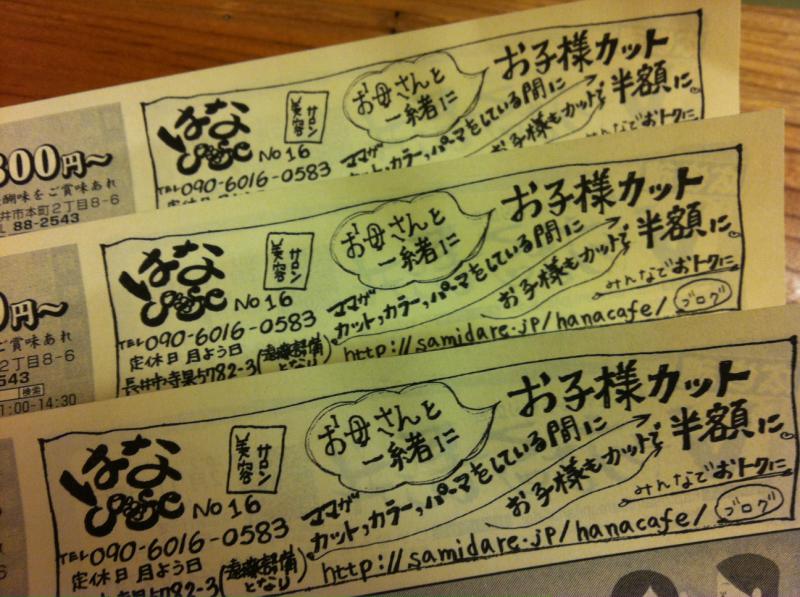 800円〜
醐味をご賞味あれ
井市本町2丁目8-6
88-2543
はな
美容サロン
No 16
TEL 090-6016-0583
お母さんと
一緒に
お子様カット
半額に。
ママが
カット、カラー、パーマをしている間に
お子様もカットで
みんなでおトクに
円〜
ご賞味あれ
2丁目8-6
543
検索
1:00-14:30
はな
美容サロン
No 16
TEL 090-6016-0583
定休日 月よう日
長井市寺泉5782-3
となり
お母さんと
一緒に
お子様カット
半額に。
ママが
カット、カラー、パーマをしている間に
お子様もカットで
みんなでおトクに
http://samidare.jp/hanacafe/
ブログ
はな
美容サロン
No 16
TEL 090-6016-0583
定休日 月よう日
82-3
となり
お母さんと
一緒に
お子様カット
半額に。
ママが
カット、カラー、パーマをしている間に
お子様もカットで
みんなでおトクに
http://samidare.jp/hanacafe/
ブログ